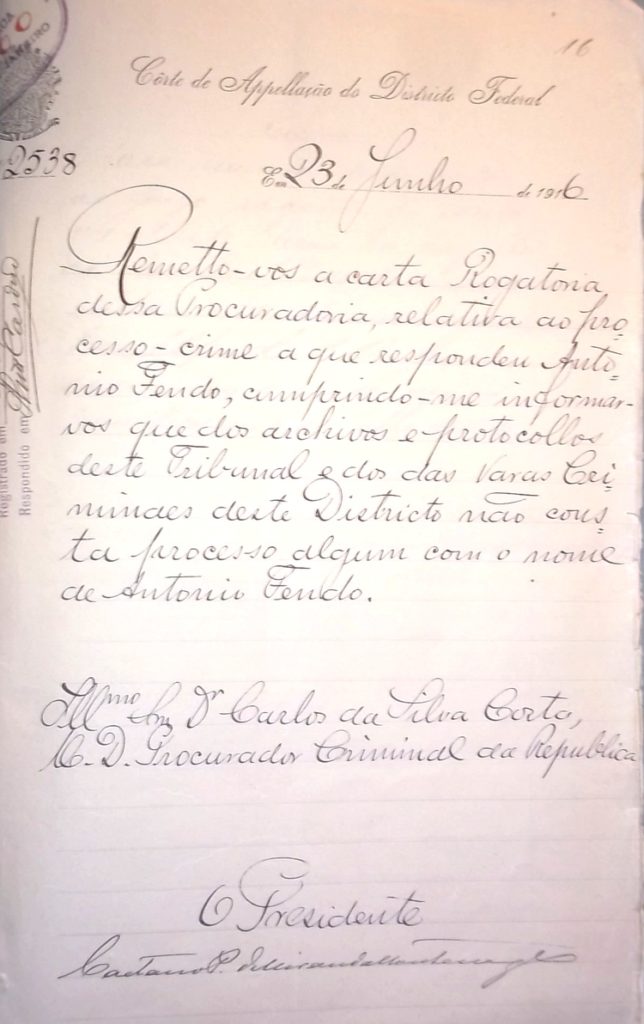 16
Côrte de Appellação do Districto Federal
2538
Em 23 de Junho de 1916
Remetto-vos a carta Rogatoria
dessa Procuradoria, relativa ao pro=
cesso-crime a que respondeu Anto=
nio Fendo, cumprindo-me informar-
vos que dos archivos e protocollos
deste Tribunal e dos das Varas Cri=
minaes deste Districto não cons=
ta processo algum com o nome
de Antonio Fendo.
Registrado em
Respondido em
Illmo Snr Dr Carlos da Silva Costa,
M. D. Procurador Criminal da Republica
O Presidente
Caetano P. de Miranda Montenegro